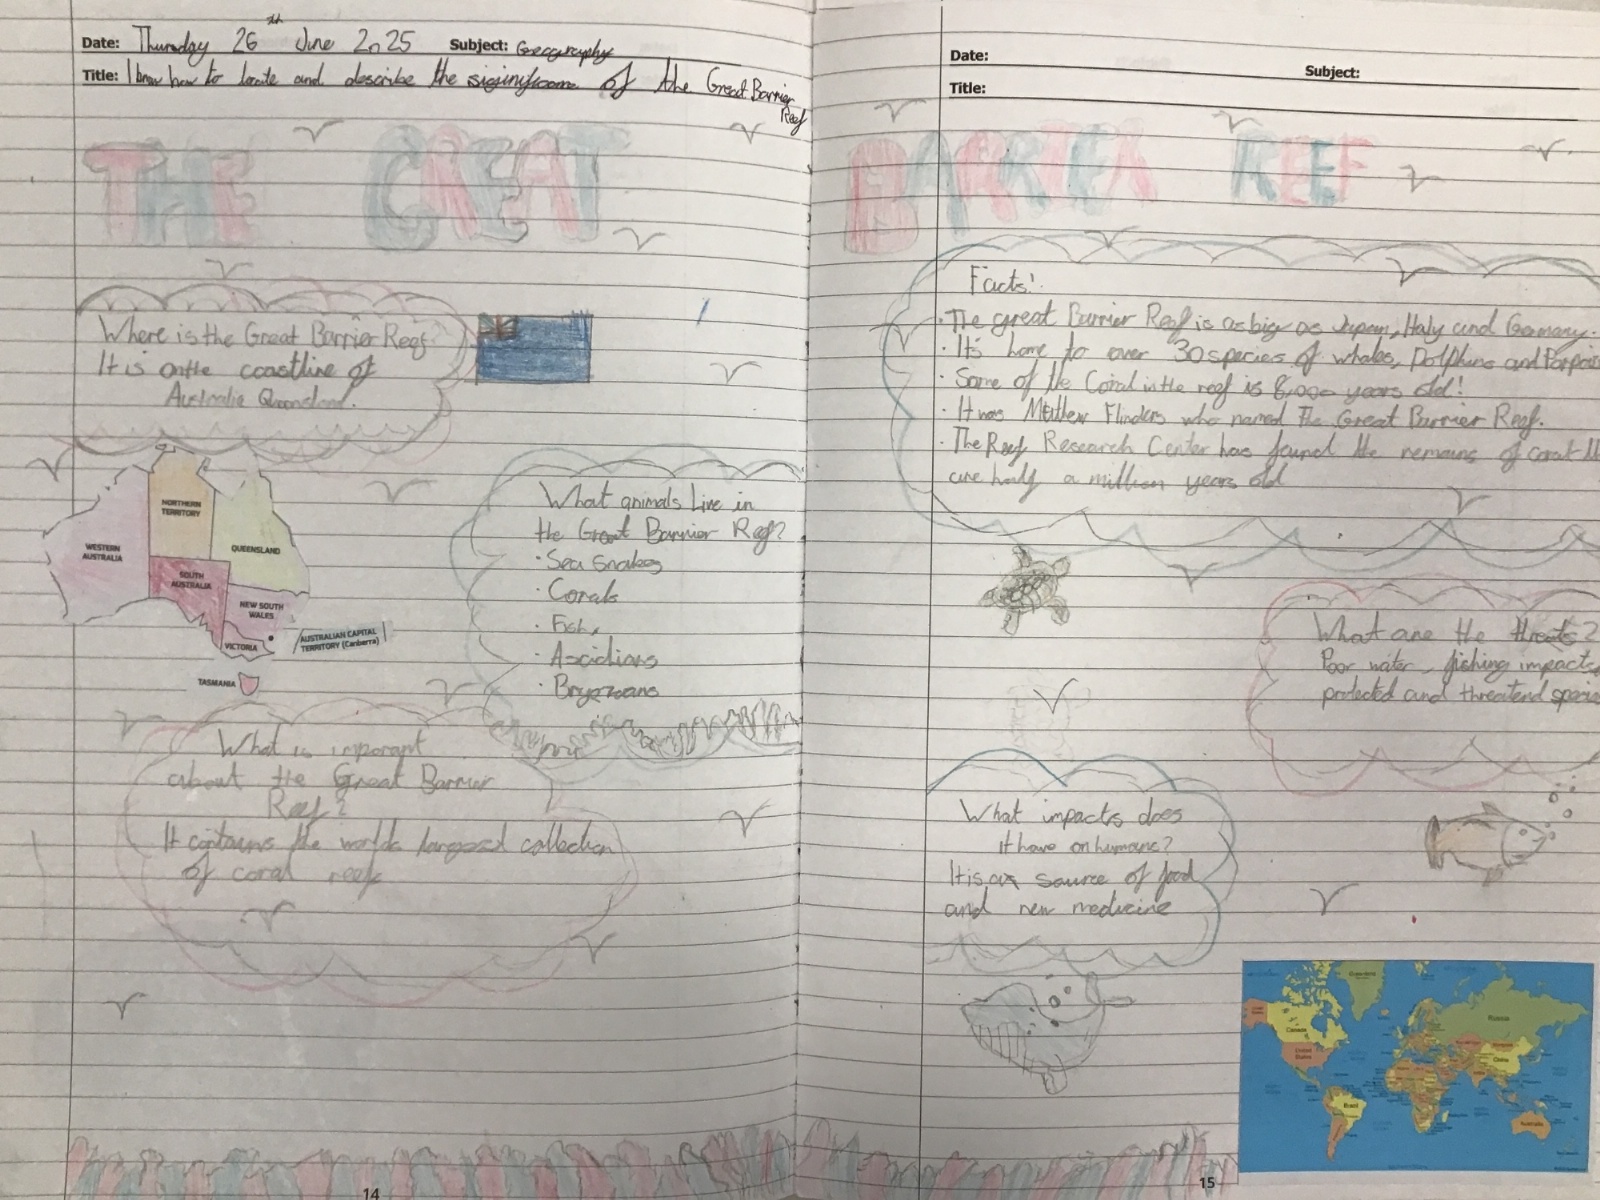 Date: Thursday 26th June 2025 Subject: Geography
Title: I know how to locate and describe the of the Great Barrier
Reef
THE GREAT
Where is the Great Barrier Reef
It is on the coastline of
Australia Queensland.
NORTHERN
TERRITORY
WESTERN
AUSTRALIA
QUEENSLAND
SOUTH
AUSTRALIA
NEW SOUTH
WALES
AUSTRALIAN CAPITAL
TERRITORY (Canberra)
VICTORIA
TASMANIA
What animals live in
the Great Barrier Reef?
· Sea Snakes
· Corals
· Fish,
· Ascidians
· Bryozoans
What is imporant
about the Great Barrier
Reef?
It contains the worlds largest collection
of coral reefs
14
Date:
Subject:
Title:
BARRIER REEF
Facts!
· The great Barrier Reef is as big as Japan, Italy and Germany.
· It's home to over 30 species of whales, Dolphins and
· Some of the Coral in the reef is years old!
· It was Matthew Flinders who named The Great Barrier Reef.
· The Reef Research Center has found the remains of coral
are half a million years old
What are the threats?
Poor water, fishing impacts
protected and threatend
What impacts does
it have on humans?
It is a source of food
and new medicine
Greenland
Russia
Canada
United
States
China
Brazil
Australia
15